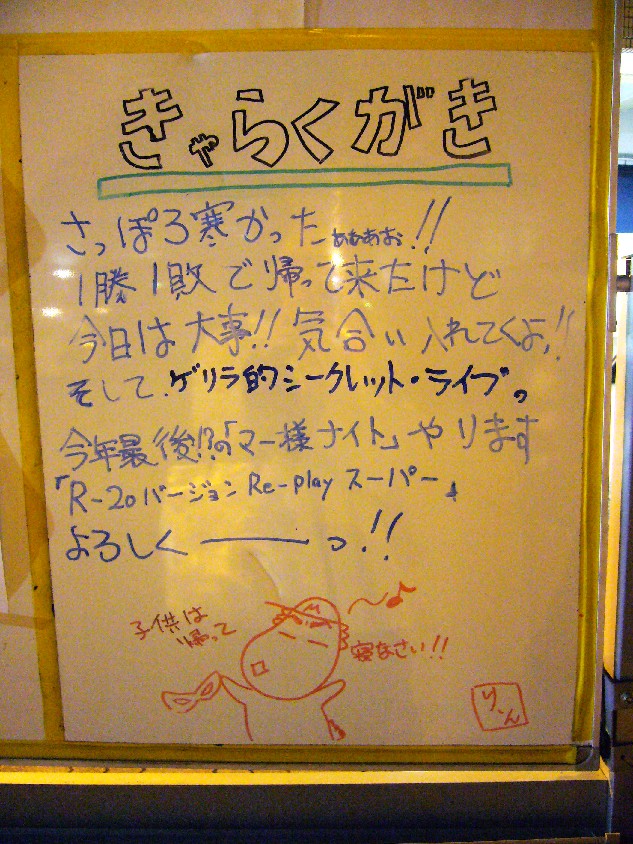 きゃらくがき
さっぽろ寒かったぁぁあぉ!!
1勝1敗で帰って来たけど
今日は大事!!気合い入れてくよ!!
そして、ゲリラ的シークレット・ライブ。
今年最後!?の「マー様ナイト」やります
「R-20バージョン Re-play スーパー」
よろしく――っ!!
子供は
帰って
寝なさい!!
り、ん